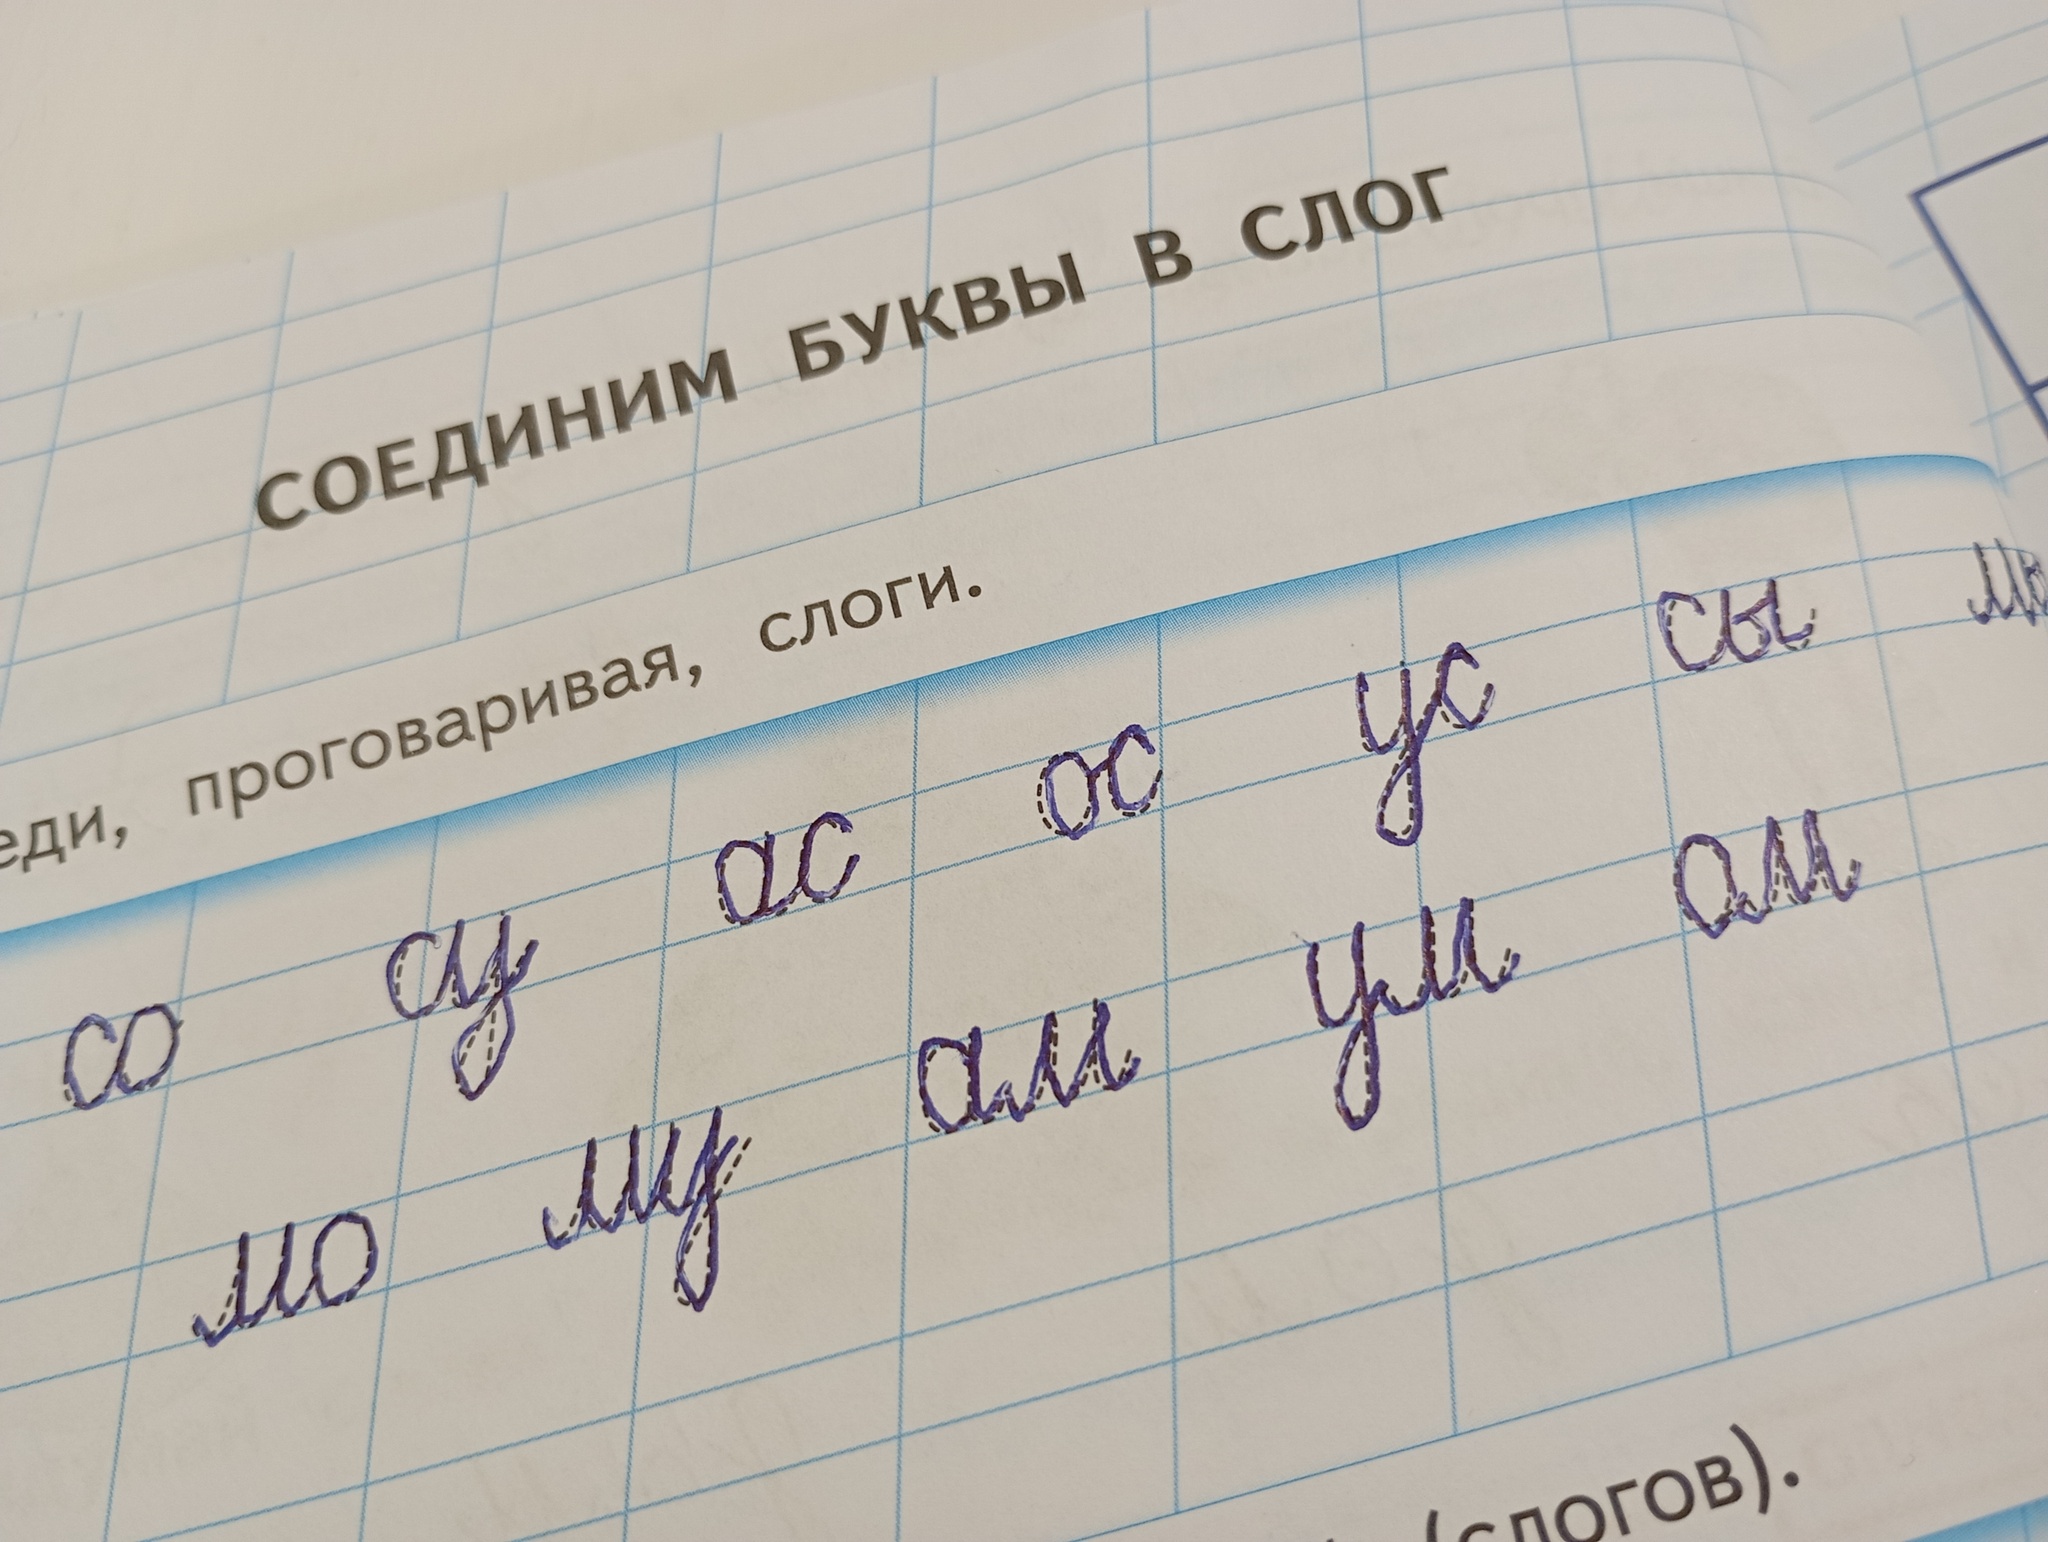 СОЕДИНИМ БУКВЫ В СЛОГ
проговаривая, слоги.
со су ас ос ус сы
мо му ам ум ам
(слогов).